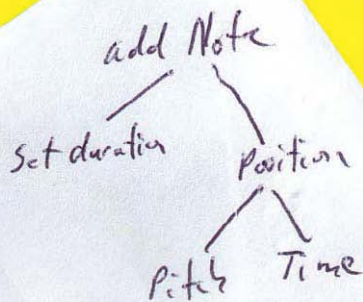 add Note
Set duration Position
Pitch Time